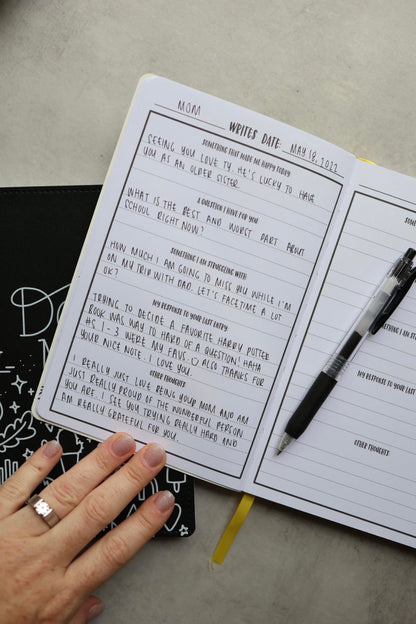 MOM
WRITES DATE: MAY 18, 2022
SOMETHING THAT MADE ME HAPPY TODAY
SEEING YOU LOVE TY. HE'S LUCKY TO HAVE
YOU AS AN OLDER SISTER.
A QUESTION I HAVE FOR YOU
WHAT IS THE BEST AND WORST PART ABOUT
SCHOOL RIGHT NOW?
SOMETHING I AM STRUGGLING WITH
HOW MUCH I AM GOING TO MISS YOU WHILE I'M
ON MY TRIP WITH DAD. LET'S FACETIME A LOT
OK?
MY RESPONSE TO YOUR LAST ENTRY
TRYING TO DECIDE A FAVORITE HARRY POTTER
BOOK WAS WAY TO HARD OF A QUESTION! HAHA
#S 1-3 WERE MY FAVS. ☺ ALSO THANKS FOR
YOUR NICE NOTE. I LOVE YOU.
OTHER THOUGHTS
I REALLY JUST LOVE BEING YOUR MOM AND AM
JUST REALLY PROUD OF THE WONDERFUL PERSON
YOU ARE. I SEE YOU TRYING REALLY HARD AND
AM REALLY GRATEFUL FOR YOU.
SOMETHING
MY RESPONSE TO YOUR LAST
OTHER THOUGHTS